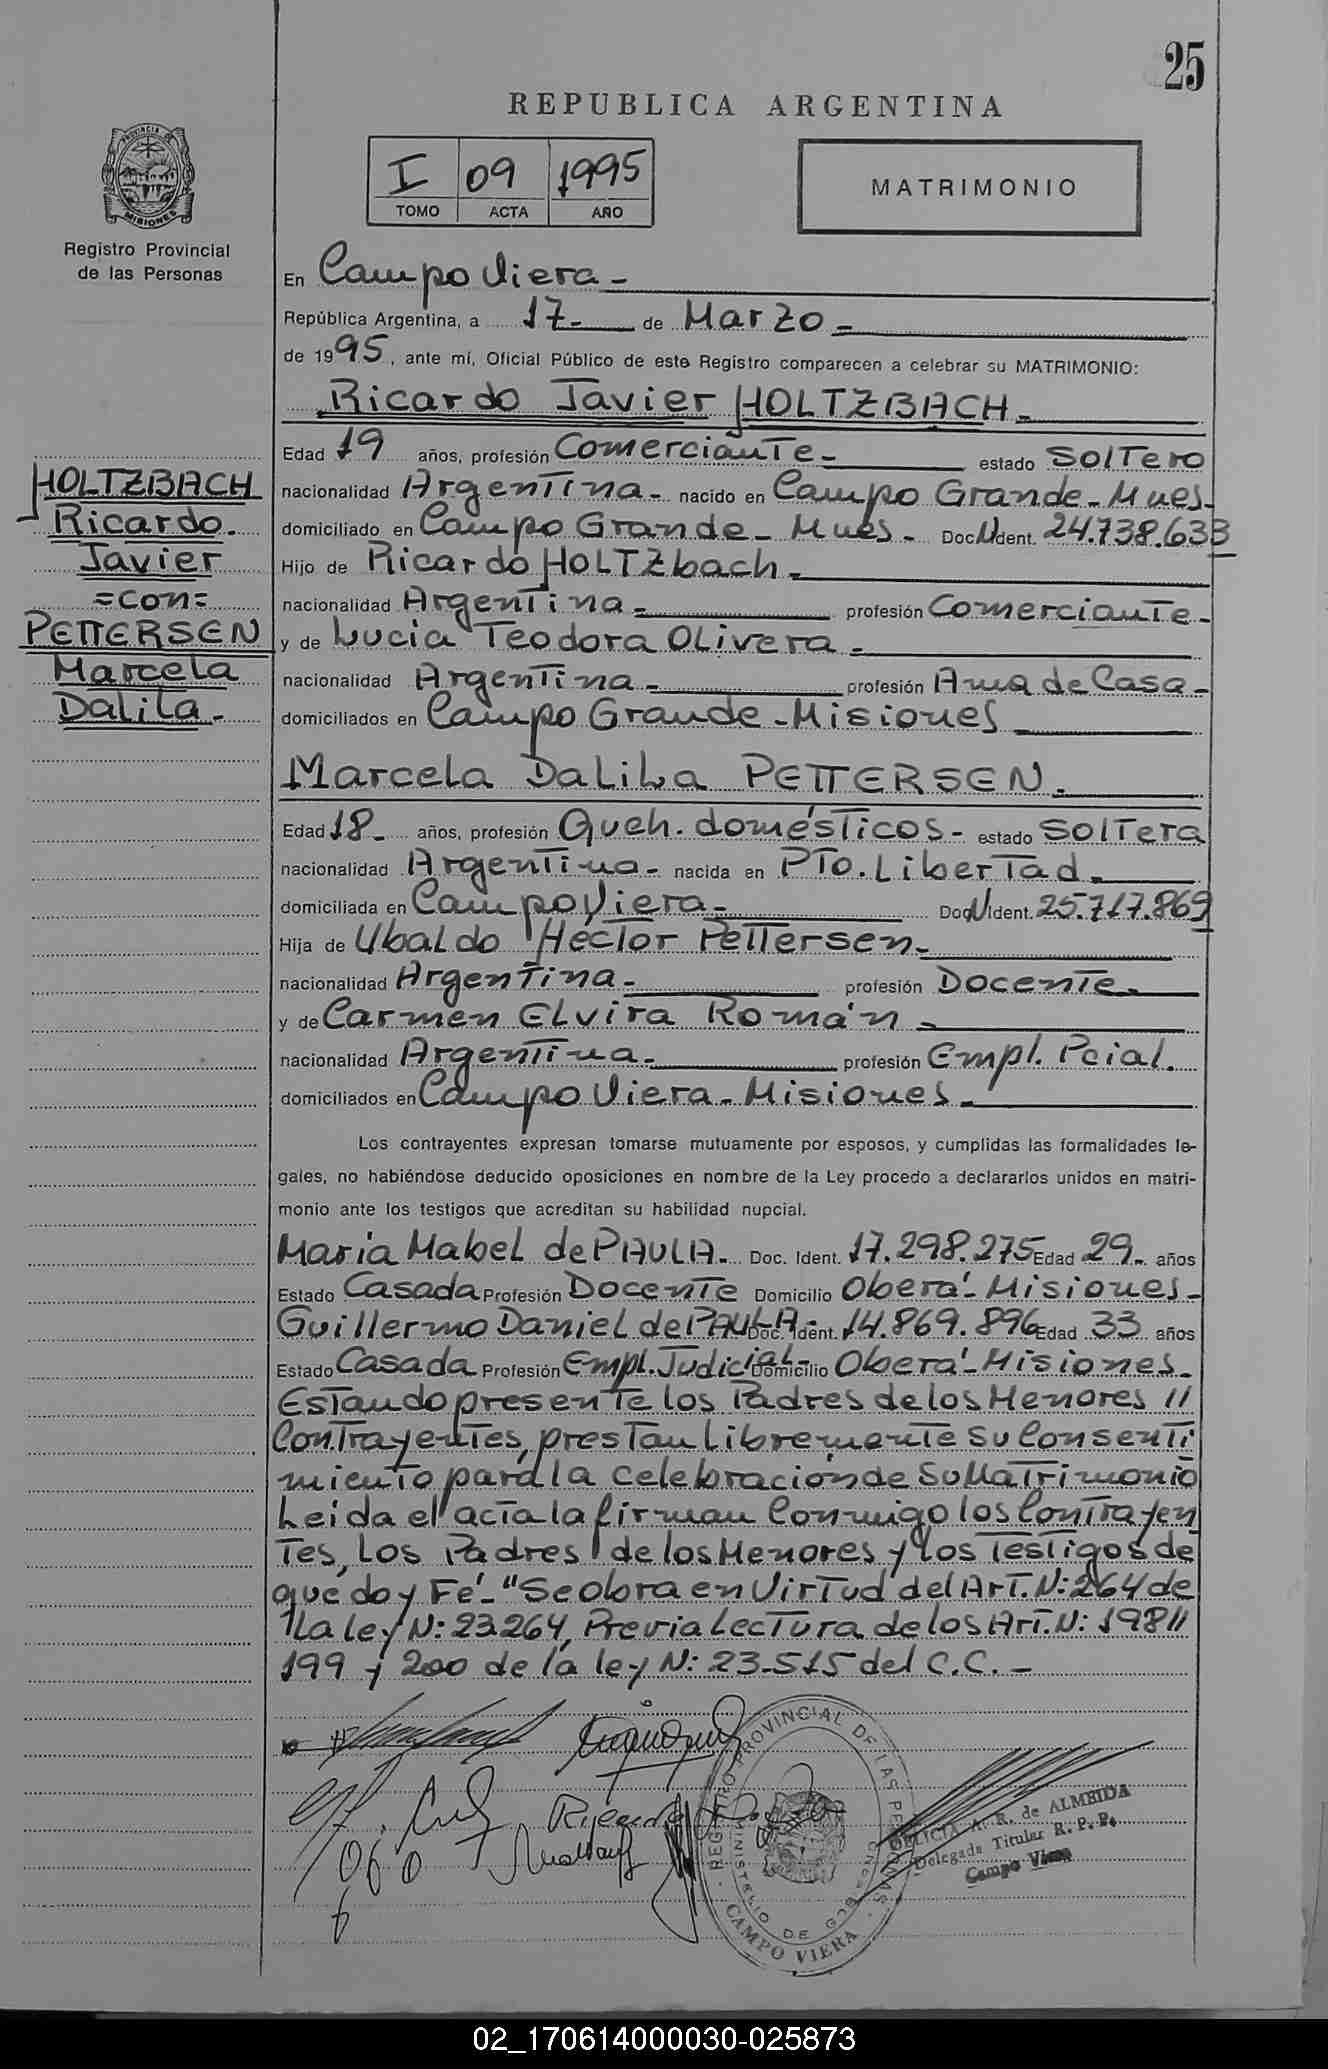 25
REPUBLICA ARGENTINA
PROVINCIA DE MISIONES
Registro Provincial
de las Personas
I 09 1995
TOMO ACTA AÑO
MATRIMONIO
En Campo Viera -
República Argentina, a 17- de Marzo -
de 1995, ante mí, Oficial Público de este Registro comparecen a celebrar su MATRIMONIO:
Ricardo Javier HOLTZBACH -
Edad 19 años, profesión Comerciante - estado Soltero
nacionalidad Argentina - nacido en Campo Grande - Mnes -
domiciliado en Campo Grande - Mnes - Doc. N Ident. 24.738.633
Hijo de Ricardo HOLTZbach -
nacionalidad Argentina - profesión Comerciante -
y de Lucia Teodora Olivera -
nacionalidad Argentina - profesión Ama de Casa -
domiciliados en Campo Grande - Misiones
HOLTZBACH
Ricardo
Javier
=con=
PETTERSEN
Marcela
Dalila -
Marcela Dalila PETTERSEN -
Edad 18 - años, profesión Queh. domésticos - estado Soltera
nacionalidad Argentina - nacida en Pto. Libertad -
domiciliada en Campo Viera - Doc. N Ident. 25.717.869
Hija de Ubaldo Héctor Pettersen -
nacionalidad Argentina - profesión Docente -
y de Carmen Elvira Román -
nacionalidad Argentina - profesión Empl. Pcial.
domiciliados en Campo Viera - Misiones -
Los contrayentes expresan tomarse mutuamente por esposos, y cumplidas las formalidades le-
gales, no habiéndose deducido oposiciones en nombre de la Ley procedo a declararlos unidos en matri-
monio ante los testigos que acreditan su habilidad nupcial.
Maria Mabel de PAULA - Doc. Ident. 17.298.275 Edad 29 - años
Estado Casada Profesión Docente Domicilio Oberá - Misiones -
Guillermo Daniel de PAULA - Doc. Ident. 14.869.896 Edad 33 años
Estado Casada Profesión Empl. Judicial - Domicilio Oberá - Misiones -
Estando presente los Padres de los Menores //
Contrayentes, prestan libremente su Consenti
miento para la celebración de su Matrimonio
Leida el acta la firman Conmigo los Contrayen
tes, Los Padres de los Menores y los Testigos de
que doy Fé - "Se obra en Virtud del Art. N: 264 de
la ley N: 23264, Previa Lectura de los Art. N: 198 //
199 y 200 de la ley N: 23.515 del C.C. -
REGISTRO PROVINCIAL DE LAS PERSONAS
MINISTERIO DE GOBIERNO
CAMPO VIERA
DELICIA A. R. de ALMEIDA
Delegada Titular R. P. P.
Campo Viera
02_170614000030-025873